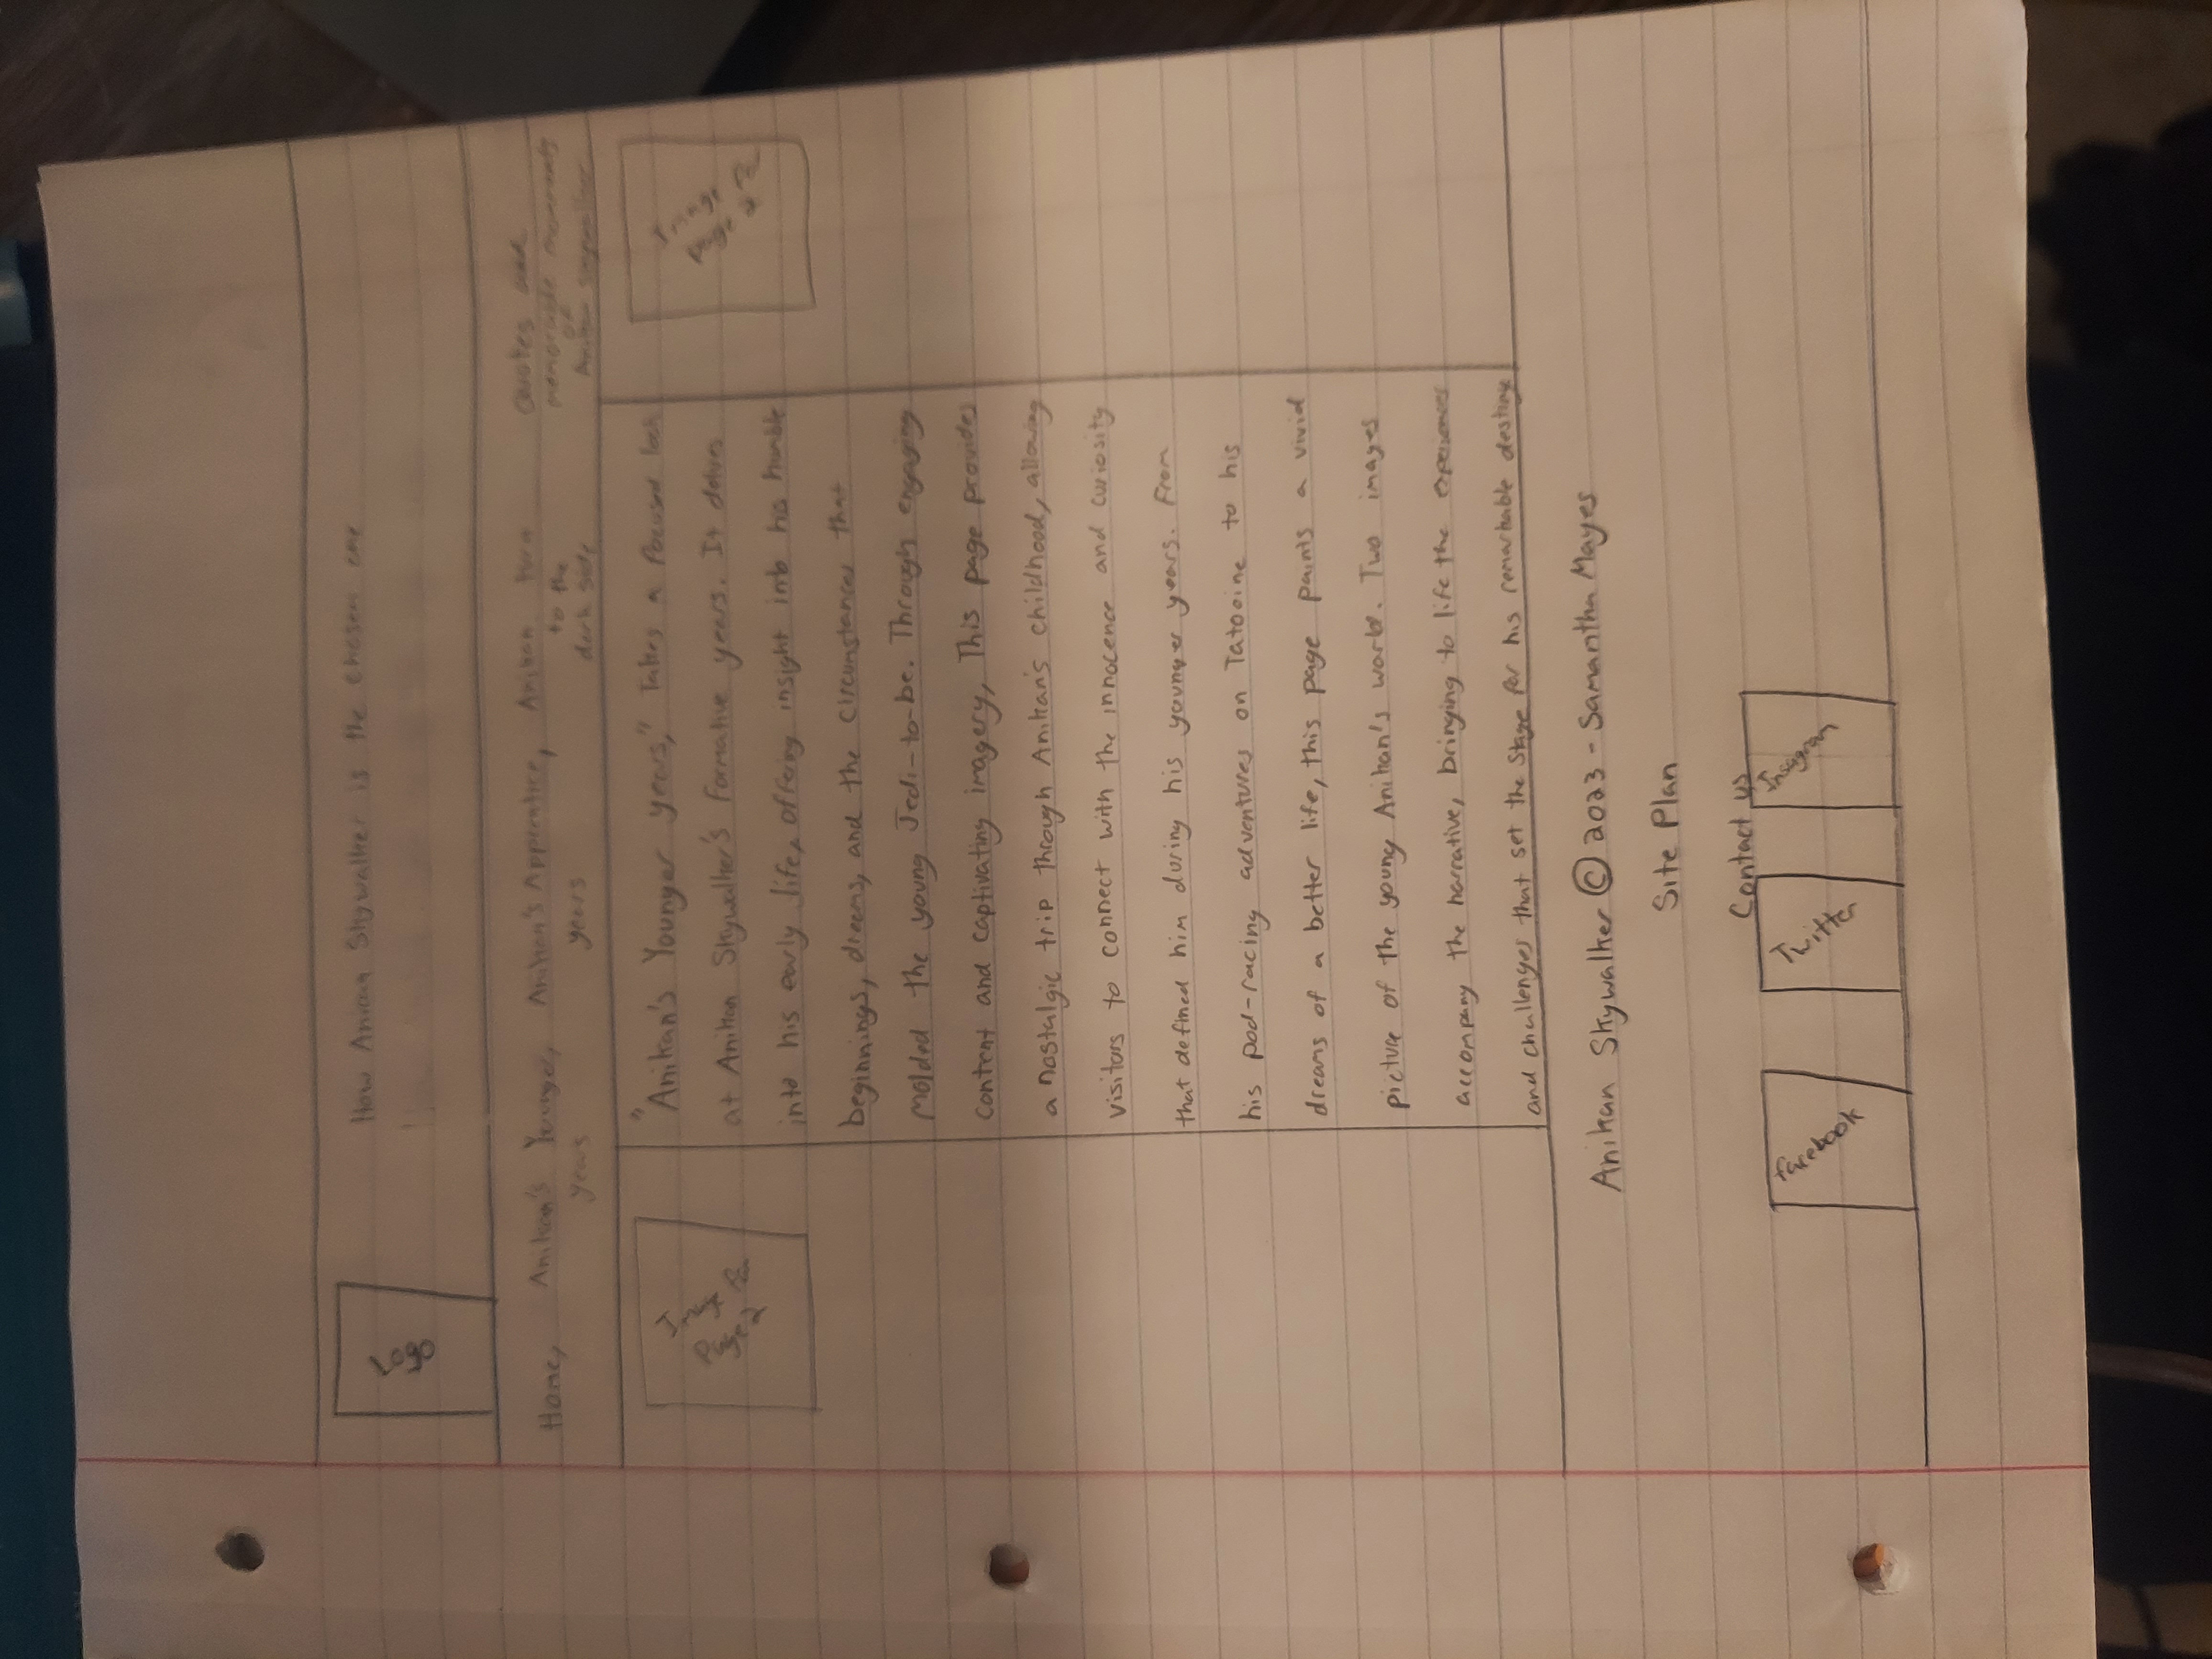 Logo
How Anikan Skywalker is the chosen one
Home, Anikan's Younger, Anikan's Apprentice, Anikan turn Quotes and
years years to the memorable moments
dark side of
Anikan
Image for
page 2
Image for
page 2
"Anikan's Younger years," Takes a focused look
at Anikan Skywalker's formative years. It delves
into his early life, offering insight into his humble
beginnings, dreams, and the circumstances that
molded the young Jedi-to-be. Through engaging
content and captivating imagery, This page provides
a nostalgic trip through Anikan's childhood, allowing
visitors to connect with the innocence and curiosity
that defined him during his younger years. From
his pod-racing adventures on Tatooine to his
dreams of a better life, this page paints a vivid
picture of the young Anikan's world. Two images
accompany the narrative, bringing to life the experiences
and challenges that set the stage for his remarkable destiny
Anikan Skywalker © 2023 - Samantha Mayes
Site Plan
Contact us
facebook
Twitter
Insagram